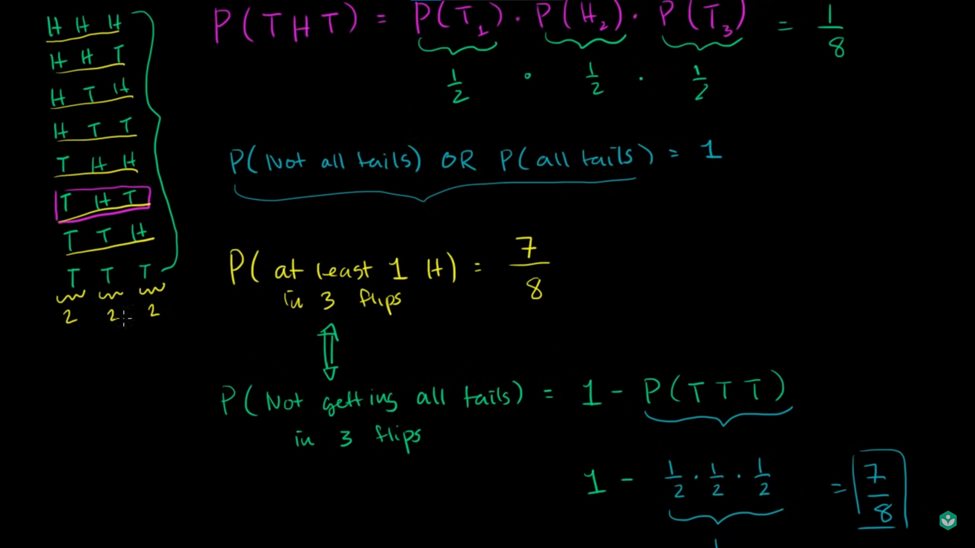 H H H
H H T
H T H
H T T
T H H
T H T
T T H
T T T
2 2 2
P(THT) = P(T₁) · P(H₂) · P(T₃) = 1/8
1/2 · 1/2 · 1/2
P(Not all tails) OR P(all tails) = 1
P(at least 1 H) = 7/8
in 3 flips
P(Not getting all tails) = 1 - P(TTT)
in 3 flips
1 - 1/2 · 1/2 · 1/2 = 7/8